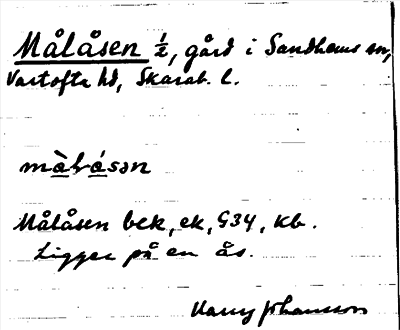 Målåsen ½, gård i Sandhems sn,
Vartofta hd, Skarab. l.
må̀låsən
Målåsen bek, ek, G34, kb.
Ligger på en ås.
Harry Johansson